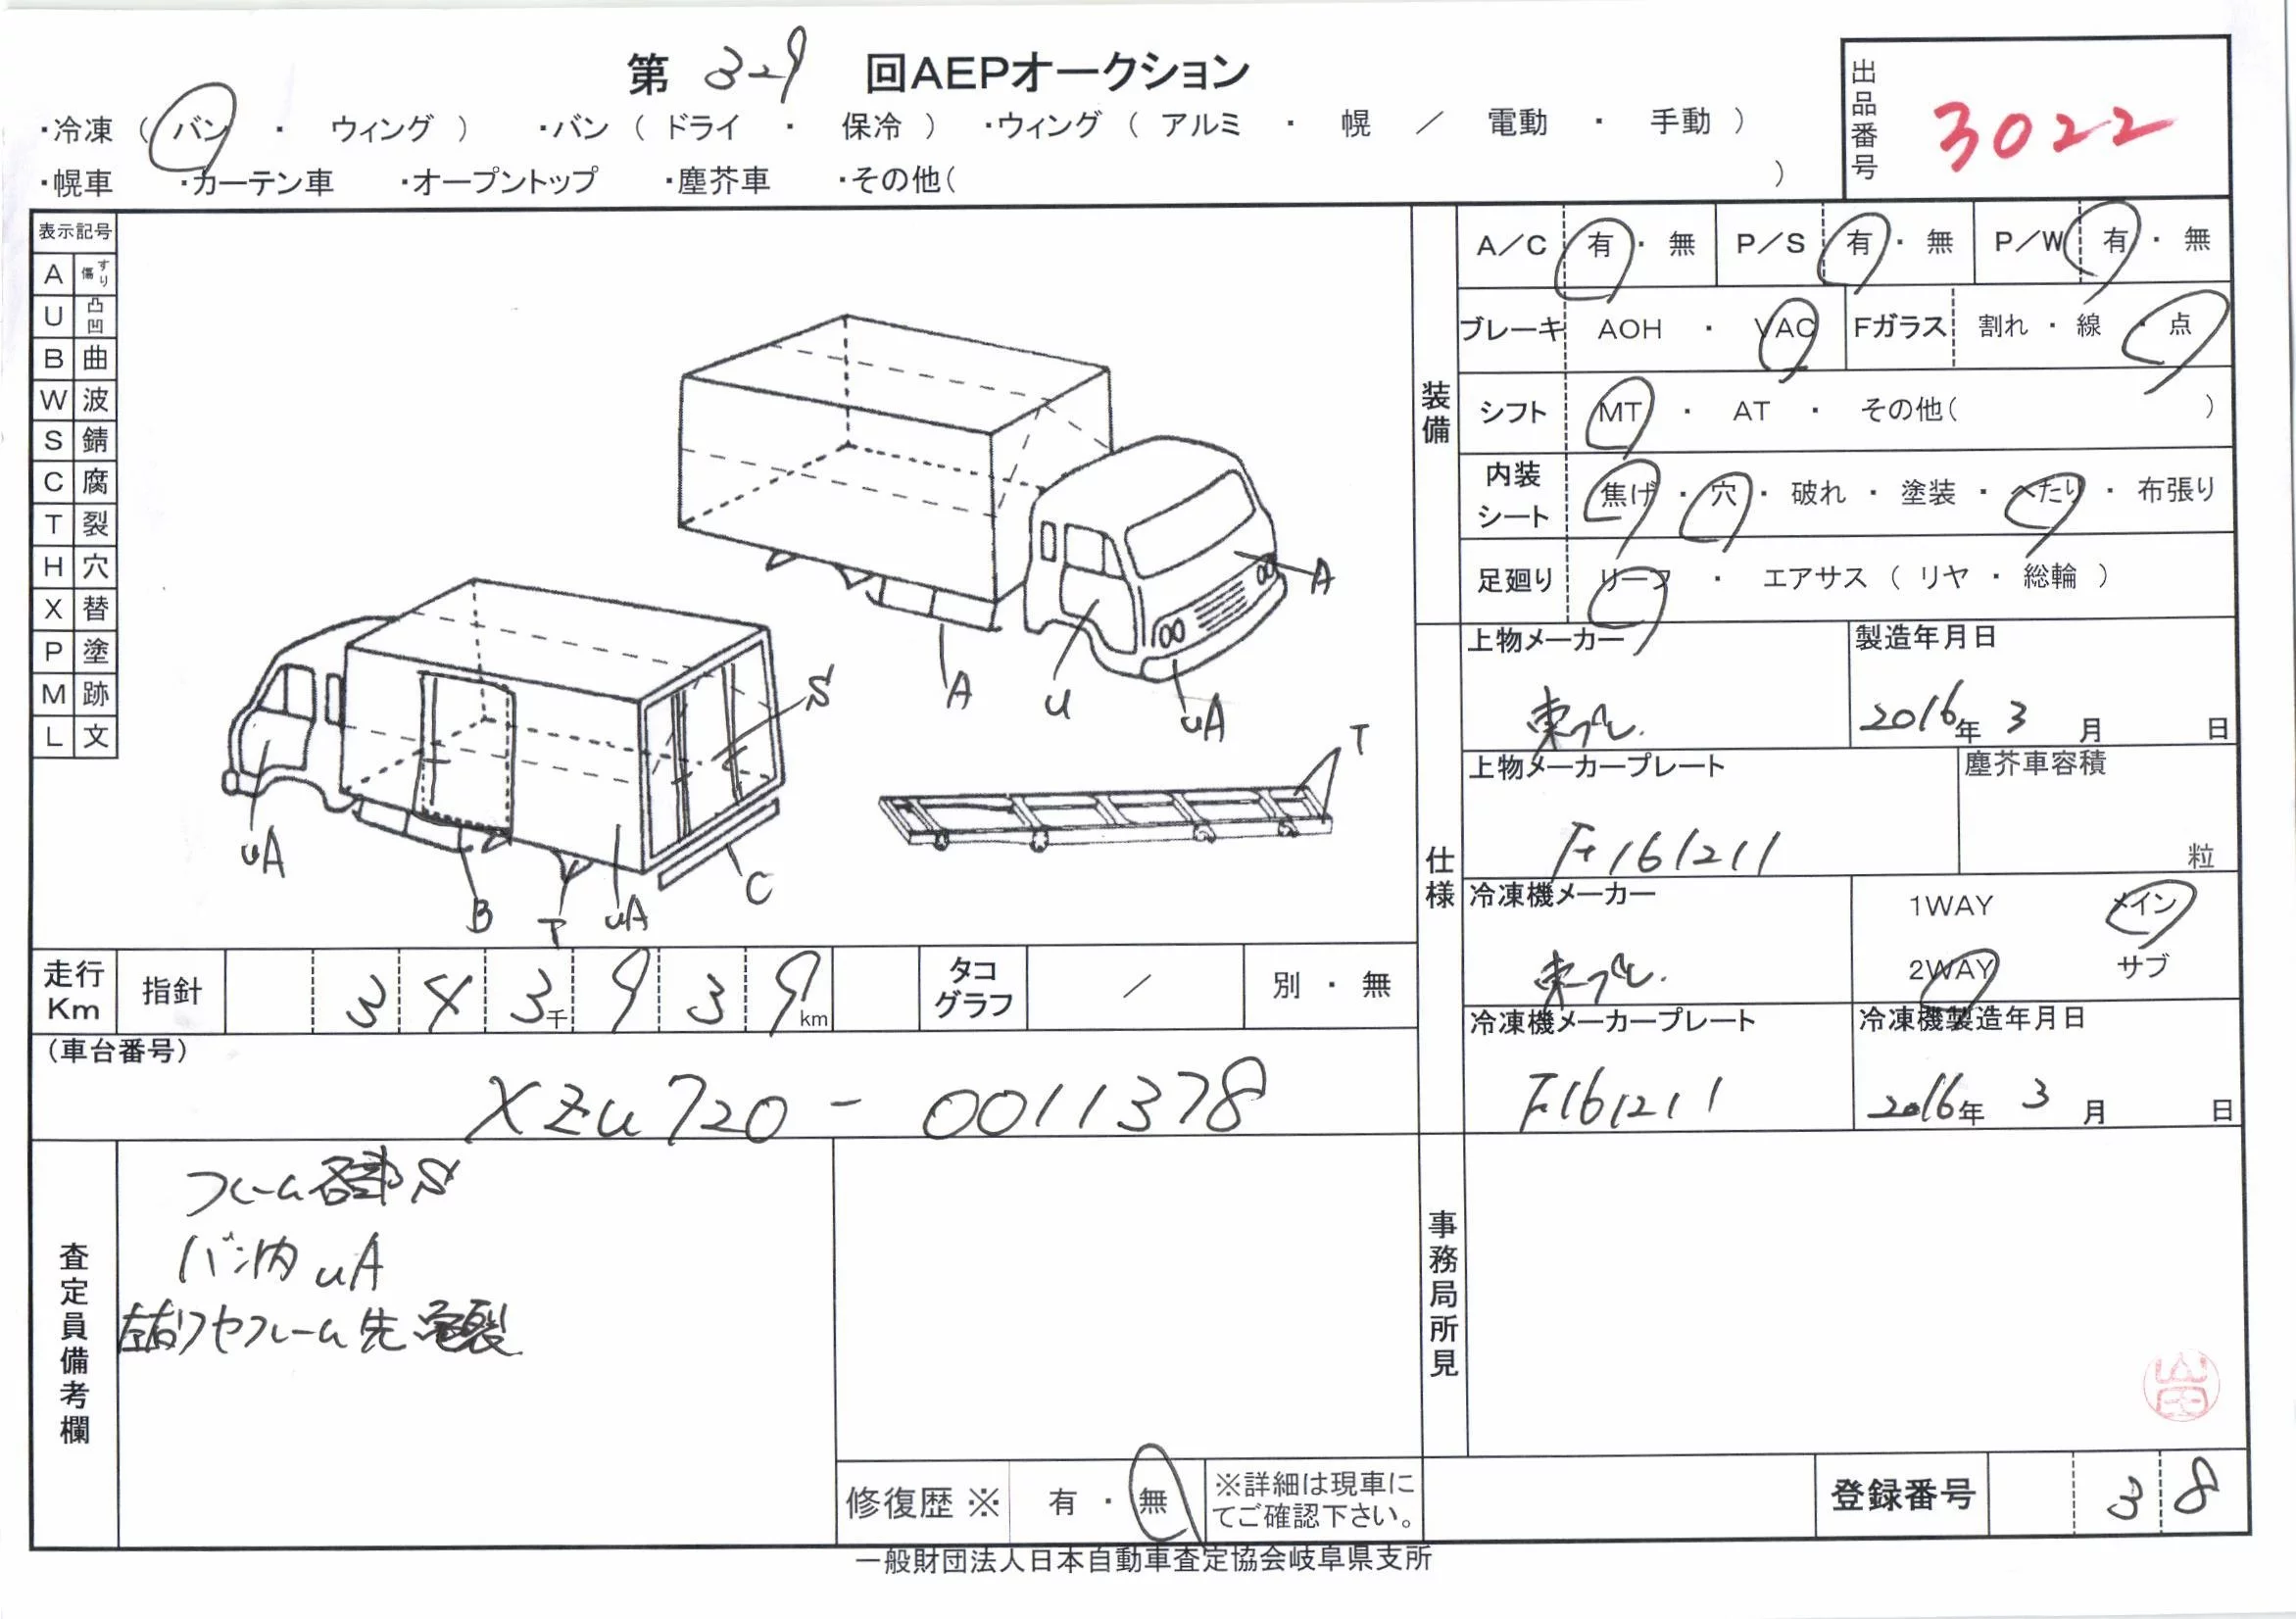 第 329 回AEPオークション
出品番号 3022
・冷凍 ( バン ・ ウィング ) ・バン ( ドライ ・ 保冷 ) ・ウィング ( アルミ ・ 幌 / 電動 ・ 手動 )
・幌車 ・カーテン車 ・オープントップ ・塵芥車 ・その他( )
表示記号
A すり傷
U 凸凹
B 曲
W 波
S 錆
C 腐
T 裂
H 穴
X 替
P 塗
M 跡
L 文
A
U
A
uA
S
T
uA
B
T
uA
C
装備
A/C 有 ・ 無 P/S 有 ・ 無 P/W 有 ・ 無
ブレーキ AOH ・ VAC Fガラス 割れ ・ 線 ・ 点
シフト MT ・ AT ・ その他( )
内装シート 焦げ ・ 穴 ・ 破れ ・ 塗装 ・ へたり ・ 布張り
足廻り リーフ ・ エアサス ( リヤ ・ 総輪 )
仕様
上物メーカー 東プレ. 製造年月日 2016年 3月 日
上物メーカープレート F161211 塵芥車容積 粒
冷凍機メーカー 東プレ. 1WAY メイン
2WAY サブ
冷凍機メーカープレート F161211 冷凍機製造年月日 2016年 3月 日
走行Km 指針 343千939km タコグラフ / 別 ・ 無
(車台番号)
XZU720 - 0011378
査定員備考欄
フレーム各部S
バン内uA
左右リヤフレーム先亀裂
事務局所見
修復歴 ※ 有 ・ 無 ※詳細は現車にてご確認下さい。
登録番号 38
一般財団法人日本自動車査定協会岐阜県支所